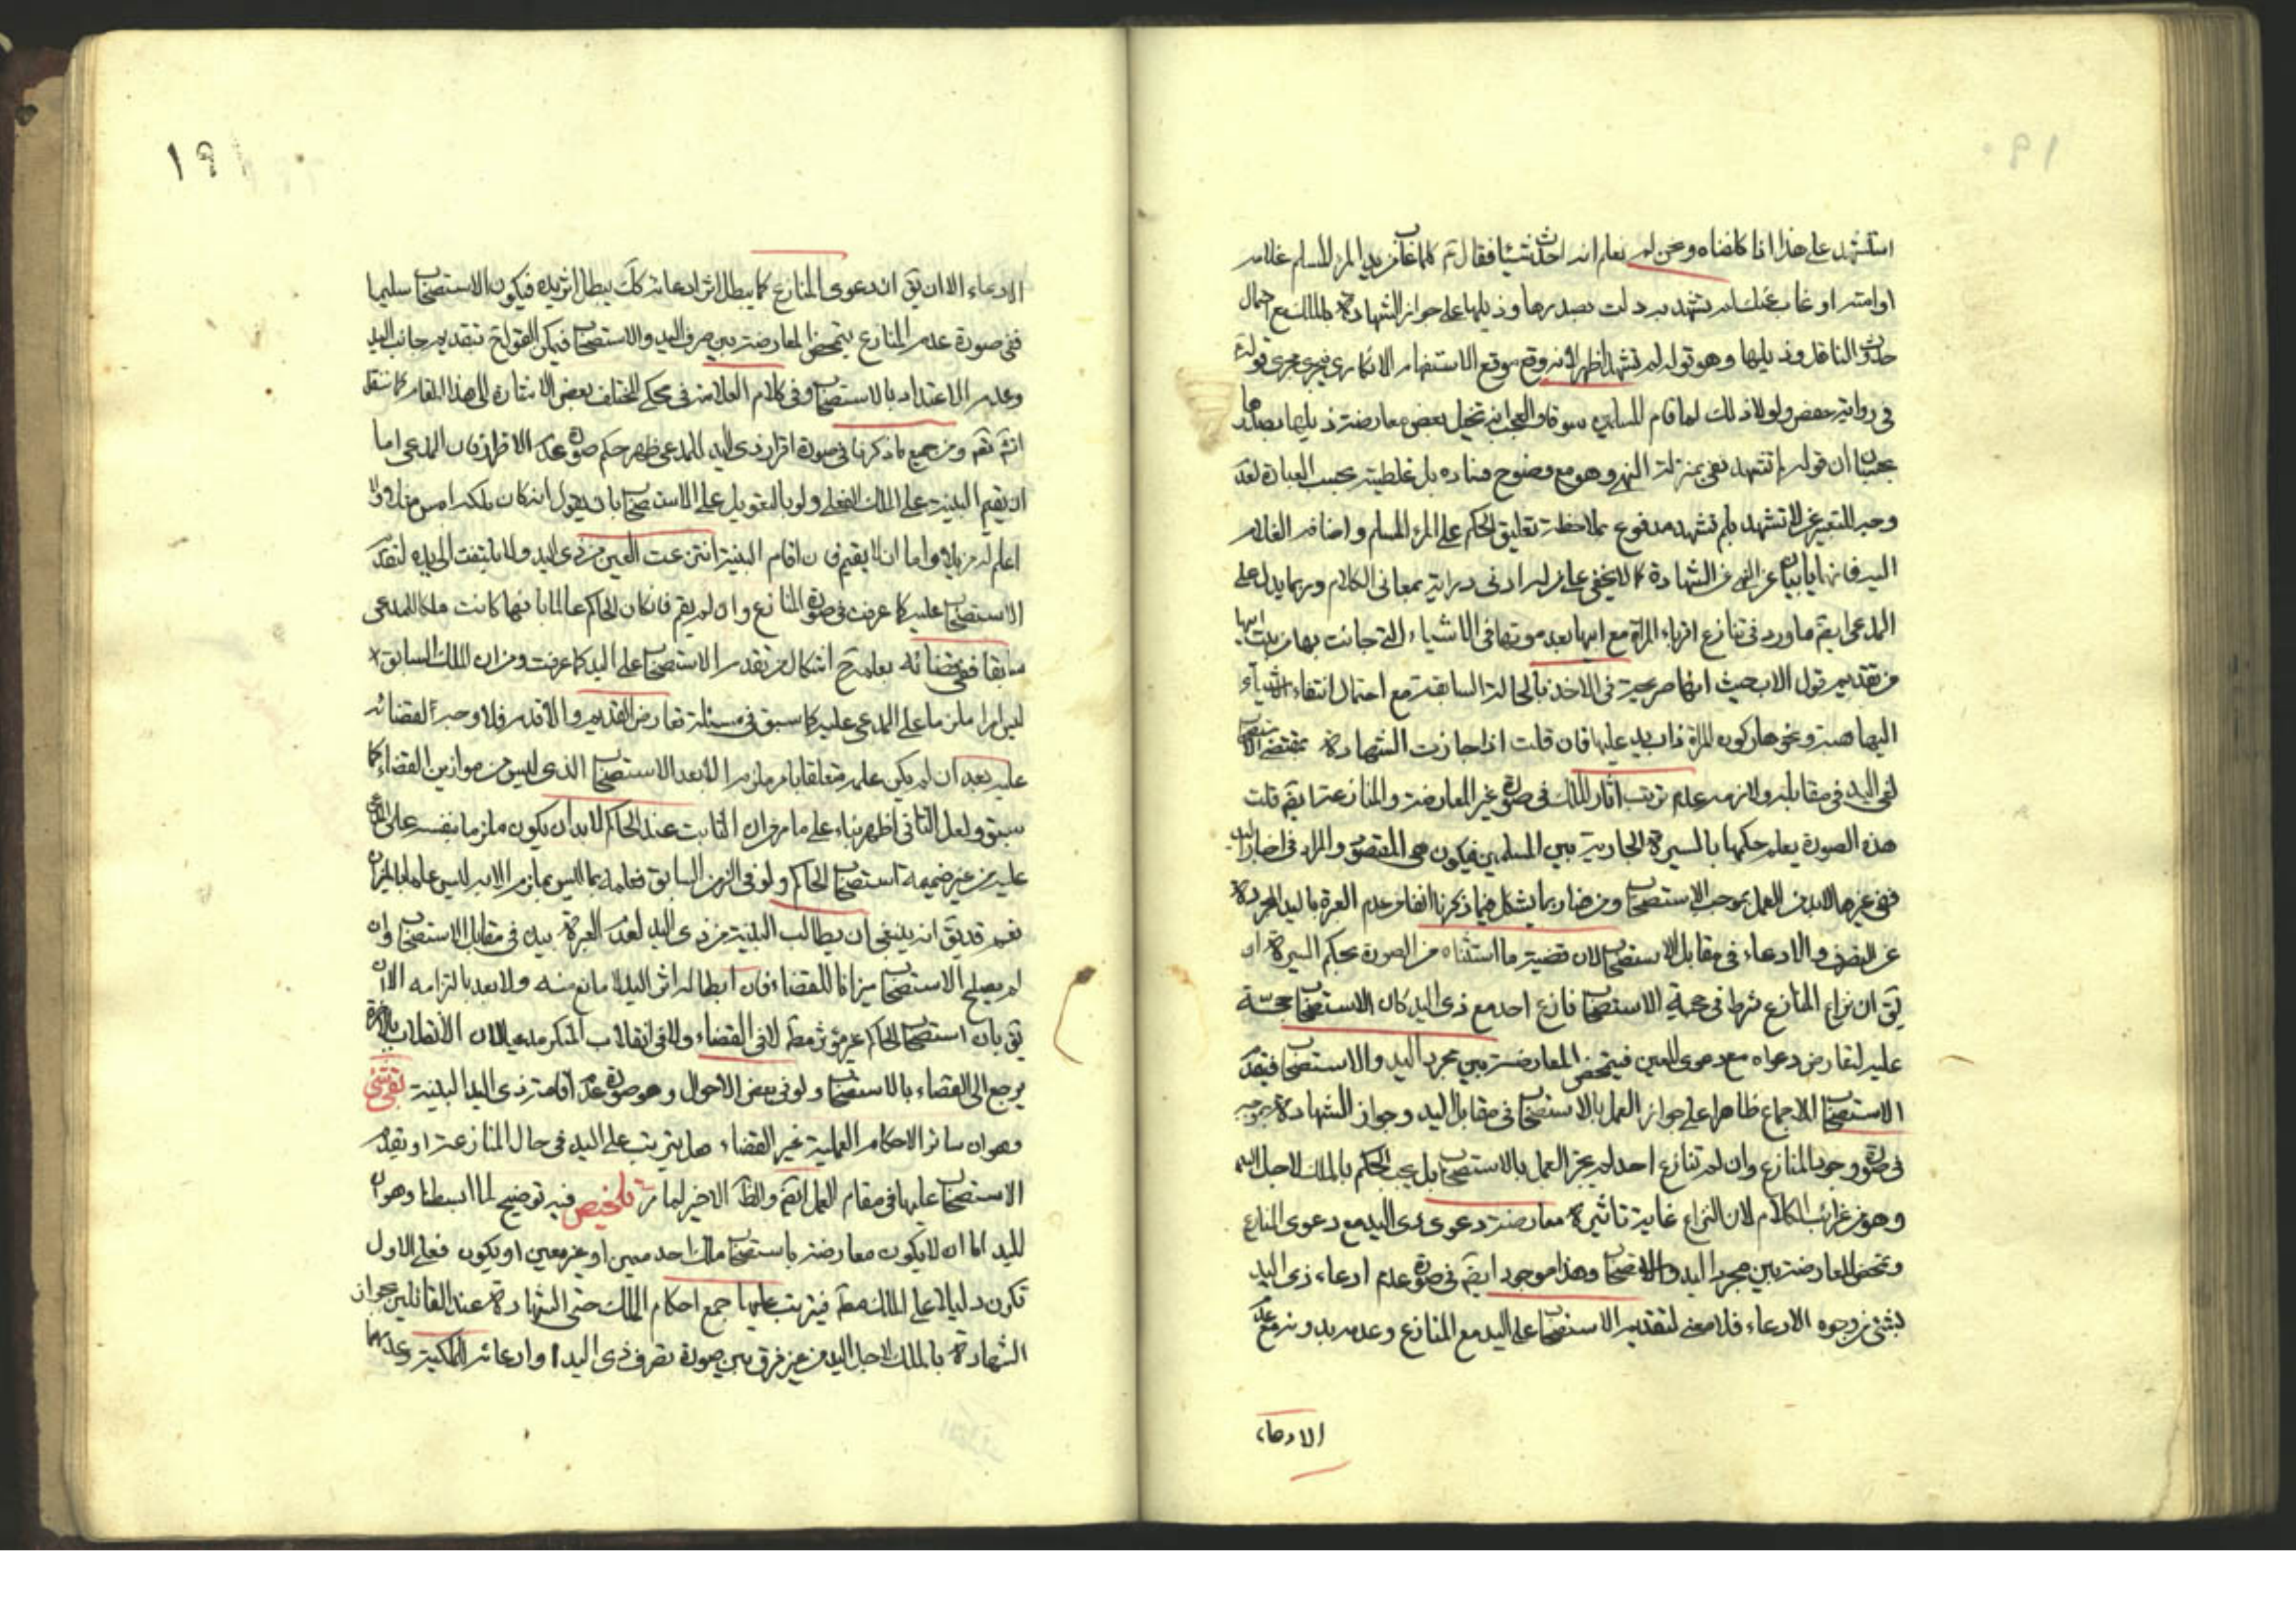 ١٩٠
استشهد على هذا اذا كلفناه ونحن لم نعلم انه احدث شيئا فقال ثم كلما غاب من يد المرء المسلم غلامه
او امته او غاب عنك لم تشهد به دلت بصدرها وذيلها على جواز الشهادة بالملك مع احتمال
حدوث الناقل وذيلها وهو قوله لم تشهد اظهر لانه وقع موقع الاستفهام الانكاري فيجري مجرى قوله
في رواية حفص ولولا ذلك لما قام للمسلمين سوق والعجب انه تخيل بعض معارضة ذيلها بصدرها
بحسبان ان قوله لم تشهد نفي بمنزلة النهي وهو مع وضوح فساده بل غلطيته بحسب العبارة لعدم
وجه للتعبير عن لا تشهد بلم تشهد مدفوع بملاحظة تعليق الحكم على المرء المسلم واضافة الغلام
اليه فانهما يابيان عن النهي عن الشهادة كما لا يخفى على من له ادنى دراية بمعاني الكلام وربما يدل على
المدعى ايضم ما ورد في تنازع اقرباء المراة مع ابيها بعد موتها في الاشياء التي جائت بها من بيت ابيها
من تقديم قول الاب حيث انها صريحة في الاخذ بالحالة السابقة مع احتمال انتقاء الاشياء
اليها هبة ونحوها وكون المراة ذات يد عليها فان قلت اذا جازت الشهادة بمقتضى الاستصحاب
لغى اليد في مقابله ولازمه عدم ترتب اثار الملك في صورة غير المعارضة والمنازعة ايضم قلت
هذه الصورة يعلم حكمها بالسيرة الجارية بين المسلمين فيكون هي المقتضى والمراد في اخبار اليد
ففي غيرها لابد من العمل بموجب الاستصحاب ومن هنا ربما يشكل فيما ذكرنا انفا من عدم العبرة باليد المجردة
عن التصرف والادعاء في مقابل الاستصحاب لان قضية ما استثناه من الصورة بحكم السيرة ان
يق ان نزاع المنازع شرط في حجية الاستصحاب فان نازع احد مع ذي اليد كان الاستصحاب حجة
عليه لتعارض دعواه مع دعوى العين فيتمحض المعارضة بين مجرد اليد والاستصحاب فيقدم
الاستصحاب للاجماع ظاهرا على جواز العمل بالاستصحاب في مقابل اليد وجواز الشهادة بموجبه
في صورة وجود المنازع وان لم تنازع احد لم يجز العمل بالاستصحاب بل يجب الحكم بالملك لاجل اليد
وهو من غرائب الكلام لان النزاع غاية تاثيره معارضة دعوى ذي اليد مع دعوى المنازع
وتمحض المعارضة بين مجرد اليد والاستصحاب وهذا موجود ايضم في صورة عدم ادعاء ذي اليد
بشئ من وجوه الادعاء فلا معنى لتقديم الاستصحاب على اليد مع المنازع وعدمه بدونه مع عدم
الادعاء
١٩١
الادعاء الا ان يق ان دعوى المنازع كما يبطل اثر ادعائه كك يبطل اثر يده فيكون الاستصحاب سليما
ففي صورة عدم المنازع يتمحض المعارضة بين صرف اليد والاستصحاب فيمكن القول ح بتقديم جانب اليد
وعدم الاعتداد بالاستصحاب وفي كلام العلامة في محكي المختلف بعض الاشارة الى هذا المقام كما سننقل
انش تعم ومن جميع ما ذكرنا في صورة اقرار ذي اليد للمدعى ظهر حكم صورة عدم الاقرار فان المدعى اما
ان يقيم البينة على الملك الفعلي ولو بالتعويل على الاستصحاب بان يقول انه كان ملكه امس مثلا ولا
اعلم له مزيلا واما ان لا يقيم فان اقام البينة انتزعت العين من ذي اليد ولا يلتفت الى يده لتقدم
الاستصحاب عليه كما عرفت في صورة المنازع وان لم يقم فان كان الحاكم عالما بانها كانت ملكا للمدعى
سابقا ففي قضائه بعلمه ح اشكال من تقدم الاستصحاب على اليد كما عرفت ومن ان الملك السابق
ليس امرا ملزما على المدعى عليه كما سبق في مسئلة تعارض القديم والاقدم فلا وجه لقضائه
عليه بعد ان لم يكن علمه متعلقا بامر ملزم الا بعد الاستصحاب الذي ليس من موازين القضاء كما
سبق ولعل الثاني اظهر بناء على ما مر من ان الثابت عند الحاكم لابد ان يكون ملزما بنفسه على المدعى
عليه من غير ضميمة استصحاب الحاكم ولو في الزمن السابق فعلمه بما ليس بملزم الا به ليس علما بالميزان
نعم قد يق انه ينبغي ان يطالب البينة من ذي اليد لعدم العبرة بيده في مقابل الاستصحاب وان
لم يصلح الاستصحاب ميزانا للقضاء فان ابطاله اثر اليد لا مانع منه ولا بعد بالتزامه الا ان
يق بان استصحاب الحاكم غير مؤثر مطم لا في القضاء ولا في انقلاب المنكر مدعيا لان الانقلاب بالاخرة
يرجع الى القضاء بالاستصحاب ولو في بعض الاحوال وهو صورة عدم اقامة ذي اليد البينة بقي شئ
وهو ان سائر الاحكام العملية غير القضاء هل يترتب على اليد في حال المنازعة او يقدم
الاستصحاب عليها في مقام العمل ايضم والظم الاخير لما مر تلخيص فيه توضيح لما ابسطنا وهو ان
لليد اما ان لا يكون معارضة باستصحاب ملك احد معين او غير معين او يكون فعلى الاول
تكون دليلا على الملك مطم فيترتب عليها جمع احكام الملك حتى الشهادة عند القائلين بجواز
الشهادة بالملك لاجل اليد من غير فرق بين صورة تصرف ذي اليد او ادعائه الملكية وعدمهما